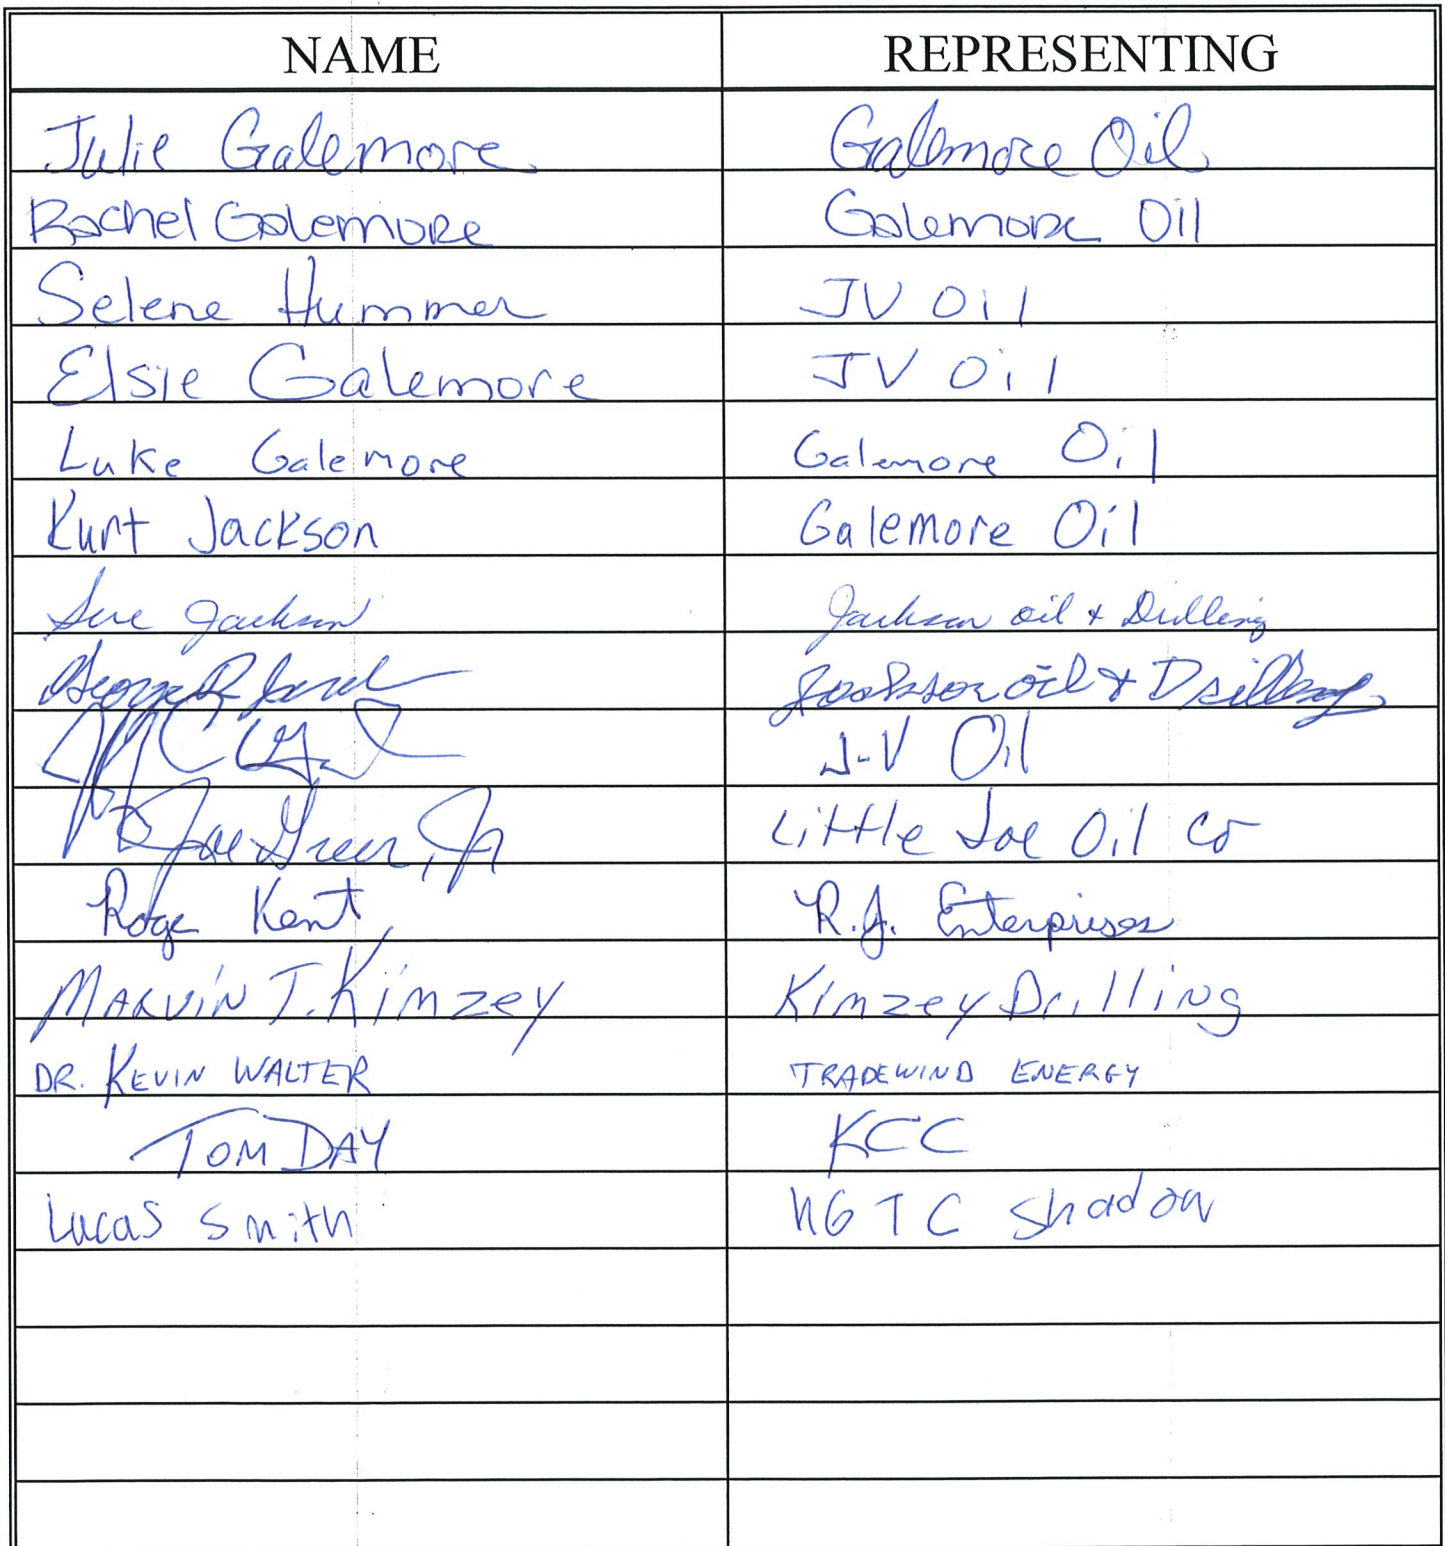 NAME REPRESENTING
Julie Galemore Galemore Oil
Rachel Galemore Galemore Oil
Selene Hummer JV Oil
Elsie Galemore JV Oil
Luke Galemore Galemore Oil
Kurt Jackson Galemore Oil
Sue Jackson Jackson oil & Drilling
George R Jackson oil & Drilling
J-V Oil
Joe Greer, Jr Little Joe Oil Co
Roger Kent R.J. Enterprises
MARVIN T. Kimzey Kimzey Drilling
DR. KEVIN WALTER TRADEWIND ENERGY
TOM DAY KCC
Lucas Smith NGTC Shadow